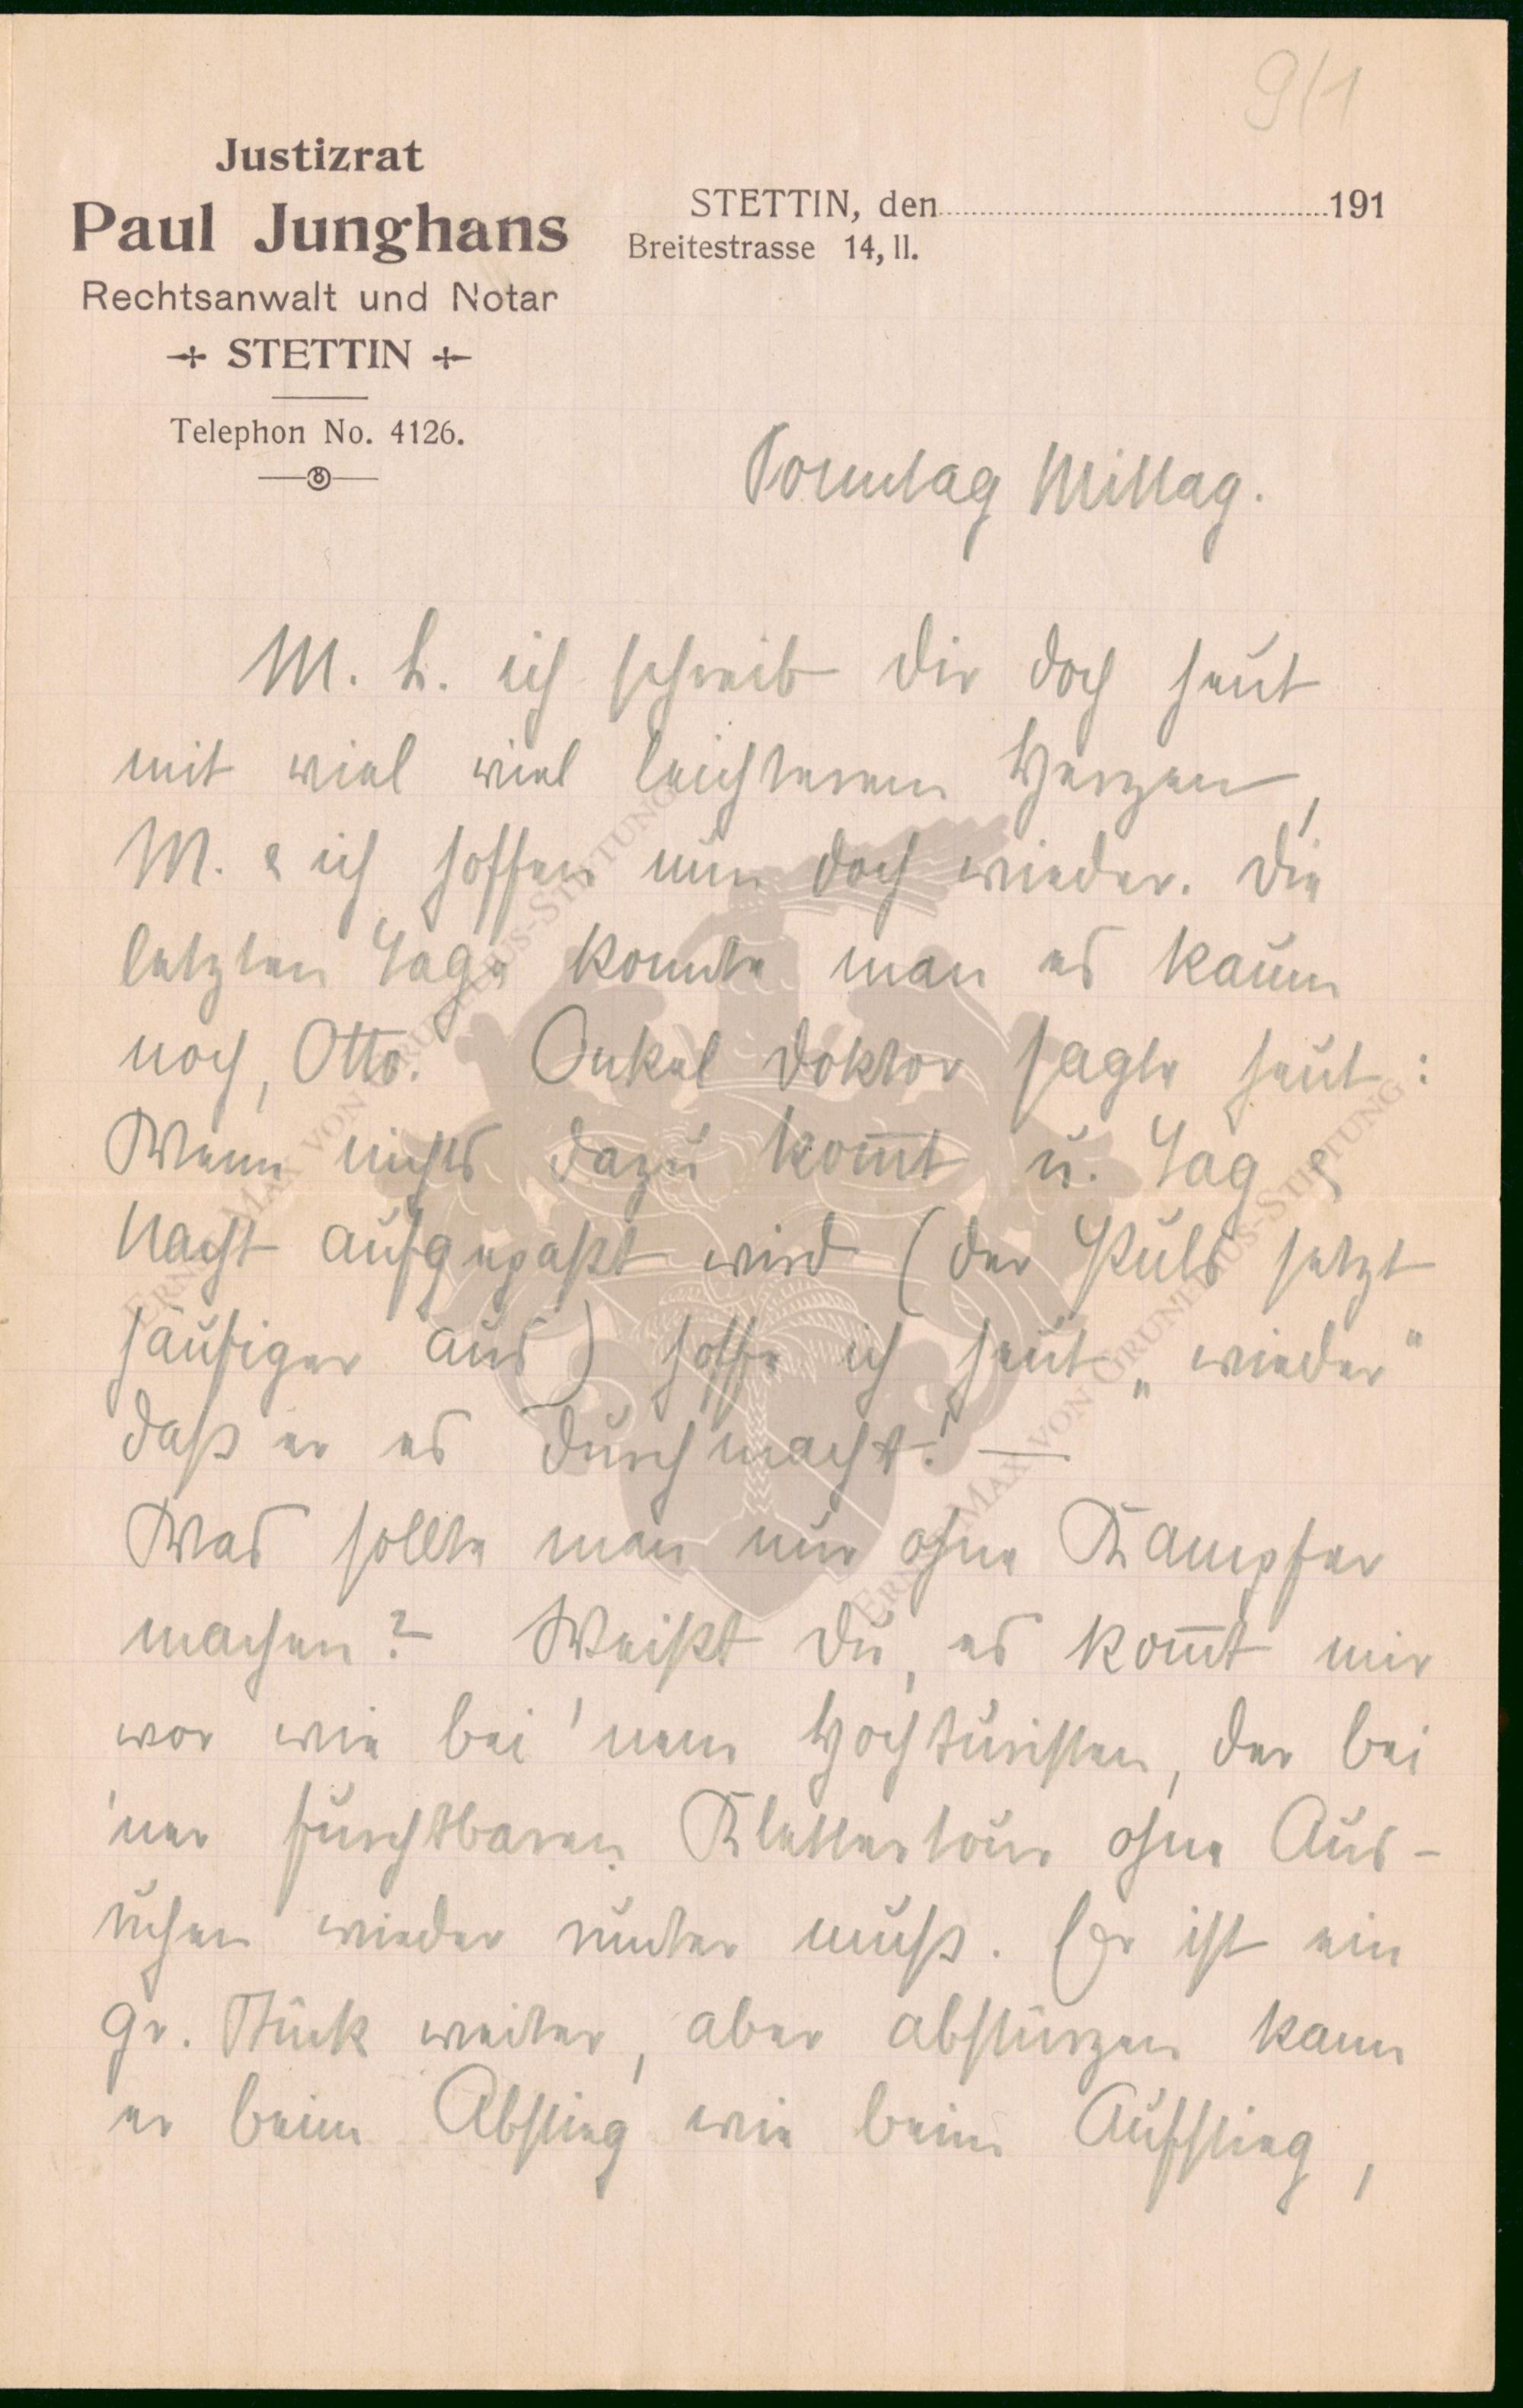 9/1
Justizrat
Paul Junghans
Rechtsanwalt und Notar
STETTIN
Telephon No. 4126.
STETTIN, den 191
Breitestrasse 14, II.
Sonntag Mittag.
M. L. ich schreib dir doch heut
mit viel viel leichterem Herzen,
M. & ich hoffen nun doch wieder. Die
letzten Tage konnte man es kaum
noch, Otto. Onkel Doktor sagte heut:
Wenn nichts dazu kom̅t u. Tag &
Nacht aufgepaßt wird (der Puls setzt
häufiger aus) hoffe ich heut „wieder“
daß er es durchmacht. —
Was sollte man nur ohne Kampfer
machen? Weißt du, es kom̅t mir
vor wie bei 'nem Hochturisten, der bei
'ner furchtbaren Klettertour ohne Aus-
ruhen wieder runter muß. Er ist ein
gr. Stück weiter, aber abstürzen kann
er beim Abstieg wie beim Aufstieg,
ERNST MAX VON GRUNELIUS-STIFTUNG
ERNST MAX VON GRUNELIUS-STIFTUNG